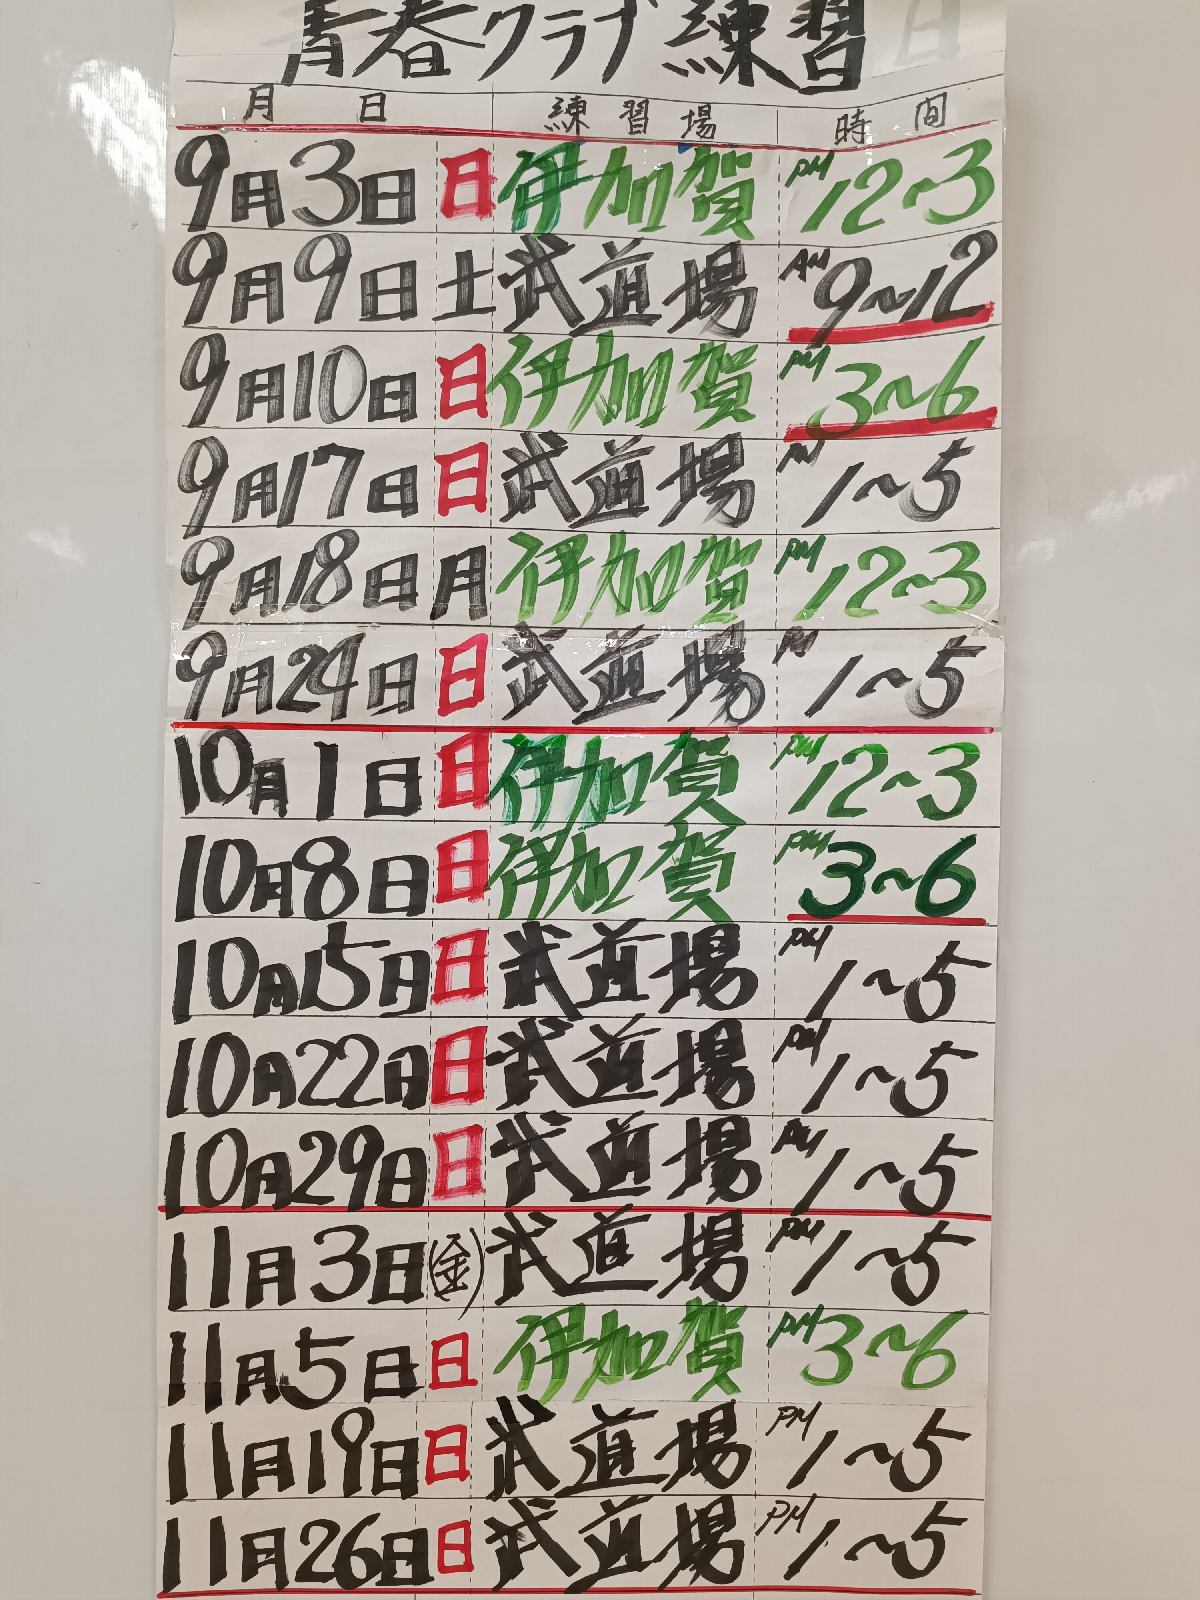 青春クラブ練習日
月 日 練習場 時間
9月3日 日 伊加賀 PM 12~3
9月9日 土 武道場 AM 9~12
9月10日 日 伊加賀 PM 3~6
9月17日 日 武道場 PM 1~5
9月18日 月 伊加賀 PM 12~3
9月24日 日 武道場 PM 1~5
10月1日 日 伊加賀 PM 12~3
10月8日 日 伊加賀 PM 3~6
10月15日 日 武道場 PM 1~5
10月22日 日 武道場 PM 1~5
10月29日 日 武道場 PM 1~5
11月3日 (金) 武道場 PM 1~5
11月5日 日 伊加賀 PM 3~6
11月19日 日 武道場 PM 1~5
11月26日 日 武道場 PM 1~5